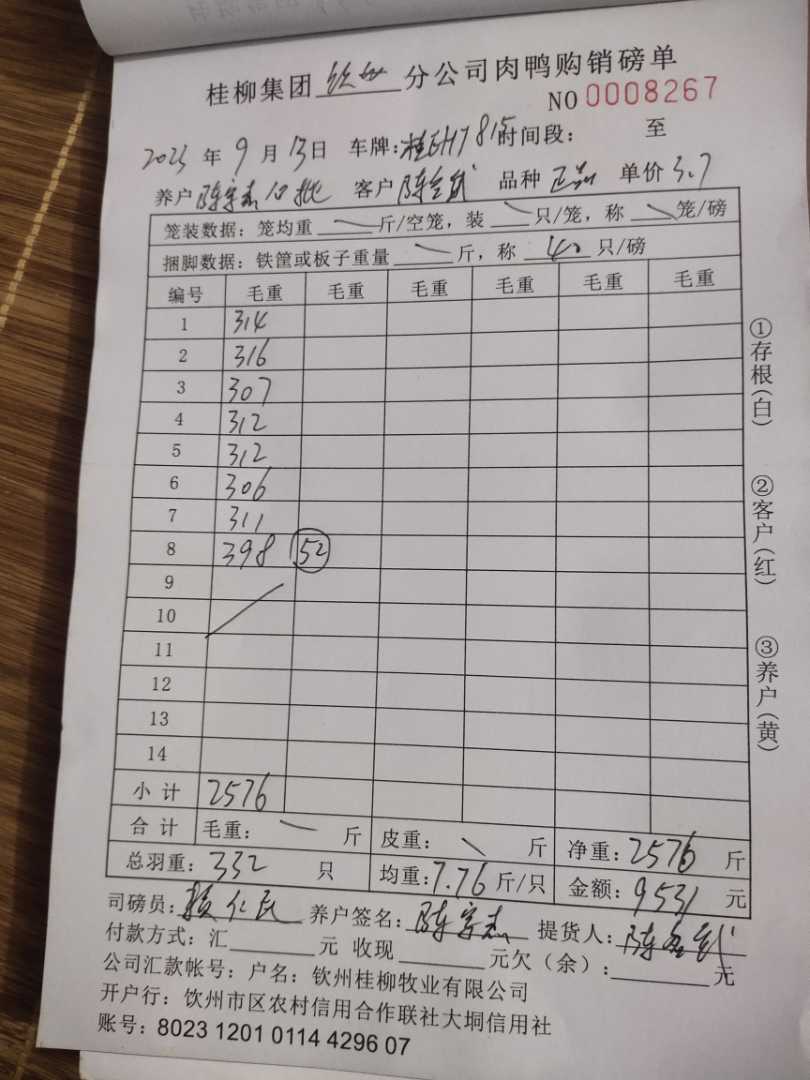 桂柳集团 钦州 分公司肉鸭购销磅单
NO 0008267
2023 年 9 月 13 日 车牌:桂EH7815 时间段: 至
养户 陈宗杰10批 客户 陈 武 品种 正品 单价 3.7
笼装数据:笼均重 斤/空笼,装 只/笼,称 笼/磅
捆脚数据:铁筐或板子重量 斤,称 40 只/磅
编号 毛重 毛重 毛重 毛重 毛重 毛重
1 314
2 316
3 307
4 312
5 312
6 306
7 311
8 398 52
9
10
11
12
13
14
小计 2576
合计 毛重: 斤 皮重: 斤 净重:2576 斤
总羽重:332 只 均重:7.76 斤/只 金额:9531 元
司磅员: 仁民 养户签名:陈宗杰 提货人:陈 武
付款方式:汇 元 收现 元欠(余): 元
公司汇款帐号:户名:钦州桂柳牧业有限公司
开户行:饮州市区农村信用合作联社大垌信用社
账号:8023 1201 0114 4296 07
①存根(白) ②客户(红) ③养户(黄)